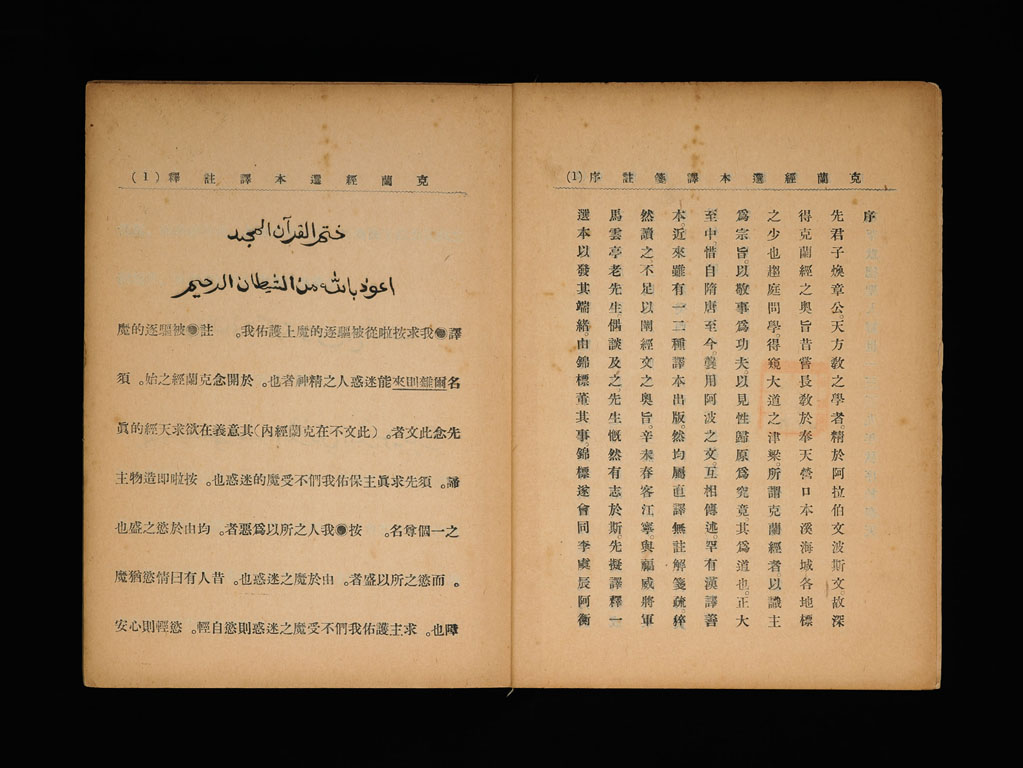 克蘭經選本譯箋註序 (1)
序
先君子煥章公。天方教之學者。精於阿拉伯文波斯文。故深
得克蘭經之奧旨昔嘗長教於奉天營口本溪海城各地標
之少也趨庭問學。得窺大道之津梁。所謂克蘭經者以識主
爲宗旨。以敬事爲功夫以見性歸原爲究竟其爲道也。正大
至中。惜自隋唐至今。襲用阿波之文。互相傳述。罕有漢譯善
本近來雖有一二種譯本出版。然均屬直譯無註解箋疏。稡
然讀之。不足以闡經文之奧旨。辛未春客江寧。與福威將軍
馬雲亭老先生偶談及之。先生慨然有志於斯。先擬譯釋一
選本以發其端緒由錦標董其事。錦標遂會同李虞辰阿衡
克蘭經選本譯註釋 (1)
ختم القرآن المجيد
اعوذ بالله من الشيطان الرحيم
譯●我求按啦從被驅逐的魔上護佑我。 註●被驅逐的魔
名爾雜則來能迷惑人之精神者也。於開念克蘭經之始。須
先念此文者。(此文不在克蘭經內)其意義在欲求天經的眞
諦。須先求眞主保佑我們不受魔的迷惑也。按啦即造物主
之一個尊名。 按●我人之所以爲惡者。均由於慾之盛也
。而慾之所以盛者。由於魔之迷惑也。昔人有曰情慾猶魔
障也。求主護佑我們不受魔之迷惑則慾自輕。慾輕則心安